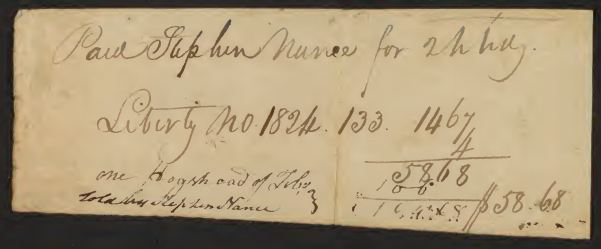 Paid Stephen Nance for 2 hhds.
Liberty No. 1824. 133. 1467
4
one Hogshead of Tob. 5868
Sold by Stephen Nance $58.68